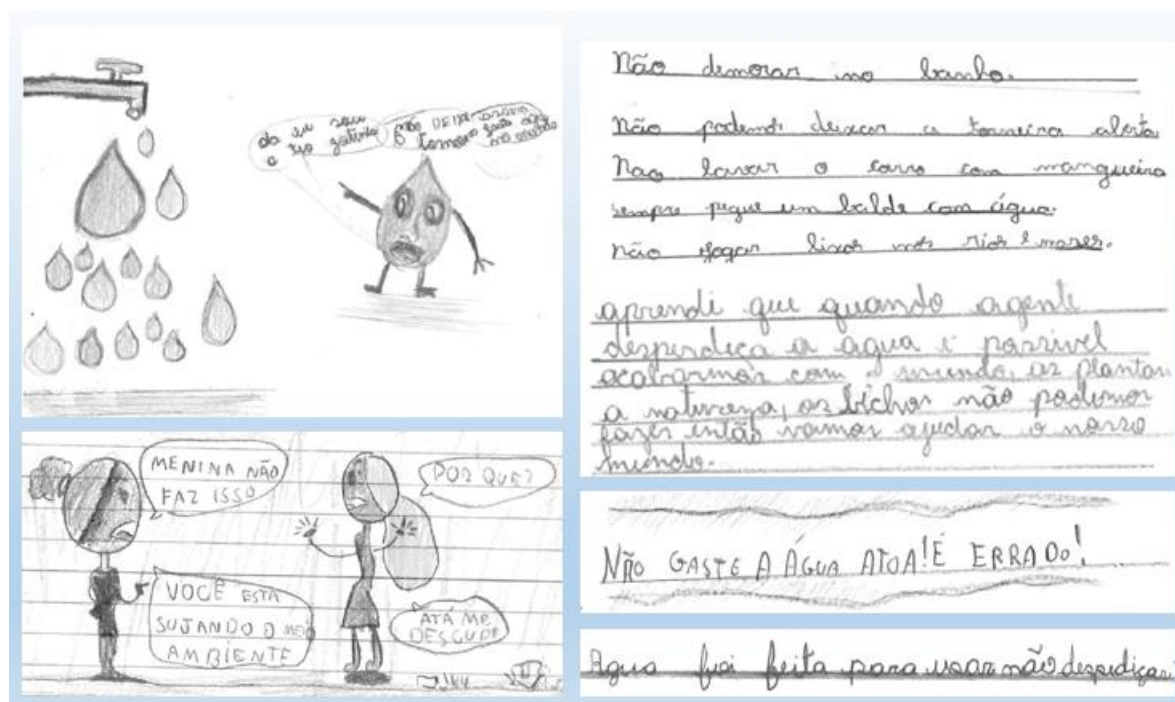 eu sou
a
não DEIXE
MENINA NÃO
FAZ ISSO
POR QUE?
VOCÊ ESTA
SUJANDO O MEIO
AMBIENTE
ATÁ ME
DESCUPE
Não demorar no banho.
Não podemos deixar a torneira aberta
Nao lavar o carro com mangueira
sempre pegue um balde com água.
não jogar lixos nos rios e mares.
aprendi que quando agente
desperdiça a agua é possivel
acabarmos com o mundo, as plantas
a natureza, os bichos não podemos
fazer então vamos ajudar o nosso
mundo.
NÃO GASTE A ÁGUA ATOA! É ERRADO!
Agua foi feita para usar não despediçar